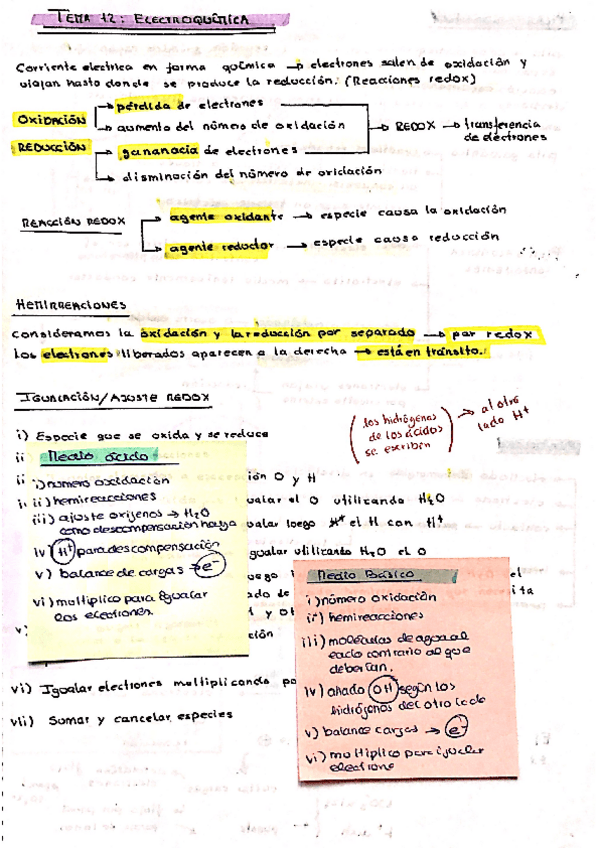 TEMA 12: ELECTROQUÍMICA
Corriente electrica en forma química → electrones salen de oxidación y
viajan hasta donde se produce la reducción. (Reacciones redox)
OXIDACIÓN → pérdida de electrones
→ aumento del número de oxidación → REDOX → transferencia de electrones
REDUCCIÓN → gananacia de electrones
→ disminación del número de oxidación
REACCIÓN REDOX → agente oxidante → especie causa la oxidación
→ agente reductor → especie causa reducción
HEMIRREACIONES
consideramos la oxidación y la reducción por separado → par redox
Los electrones liberados aparecen a la derecha → está en tránsito.
IGUALACIÓN/AJUSTE REDOX
(los hidrógenos de los ácidos se escriben) → al otro lado H+
i) Especie que se oxida y se reduce
ii
ión O y H
ualar el O utilizando H2O
ualar luego H+ el H con H+
gualar utilizando H2O el O
uego
el
ado de
ita
ión
vi) Igualar electrones multiplicando po
vii) Sumar y cancelar especies
Medio ácido
i) número oxcidación
ii) hemireacciones
iii) ajuste oxigenos → H2O
como descompensación haya
iv) H+ para descompensación
v) balance de cargas → e-
vi) multiplico para igualar
los electrones.
Medio Básico
i) número oxidación
ii) hemireacciones
iii) moléculas de agua al
lado contrario al que
deberían.
iv) añado OH según los
hidrógenos del otro lado
v) balance cargas → e-
vi) multiplico para igualar
electrone